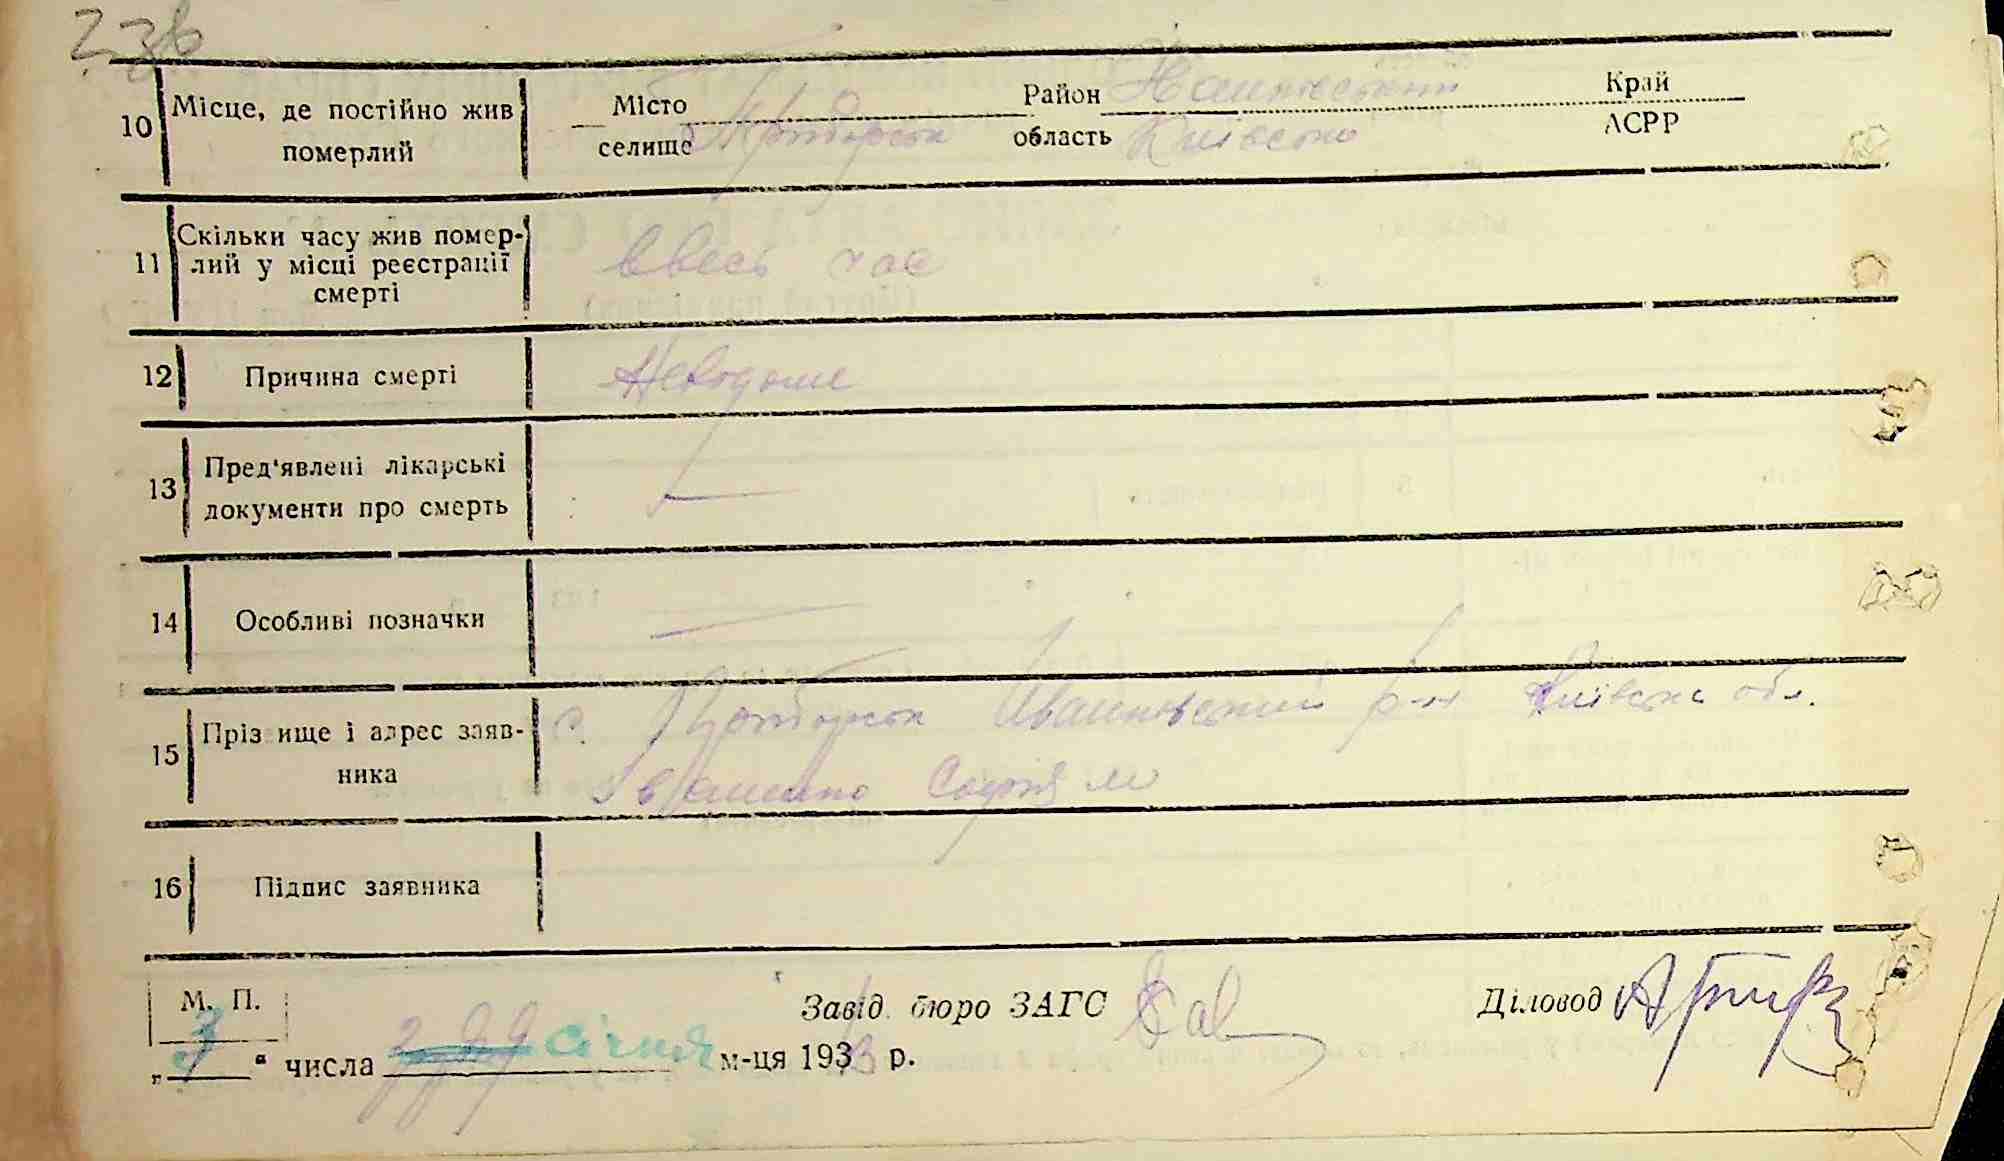 236
10 Місце, де постійно жив померлий
Місто Район Іванківський Край
селище область Київська АСРР
11 Скільки часу жив помер-
лий у місці реєстрації
смерті
ввесь час
12 Причина смерті
Невідоме
13 Пред'явлені лікарські
документи про смерть
—
14 Особливі позначки
—
15 Прізвище і адрес заяв-
ника
с. Іванківський р-н Київська обл.
Івашенко Софія М
16 Підпис заявника
М. П.
Завід. бюро ЗАГС
Діловод
„3“ числа січня м-ця 1933 р.